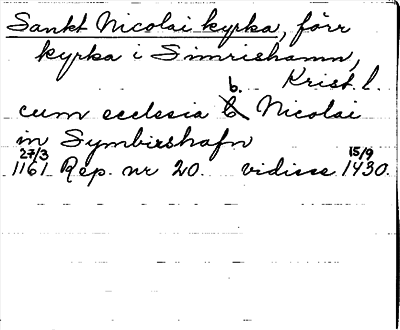 Sankt Nicolai kyrka, förr
kyrka i Simrishamn,
Krist. l.
cum ecclesia b. Nicolai
in Symbirshafn
27/3 1161 Rep. nr 20. vidisse 15/9 1430.